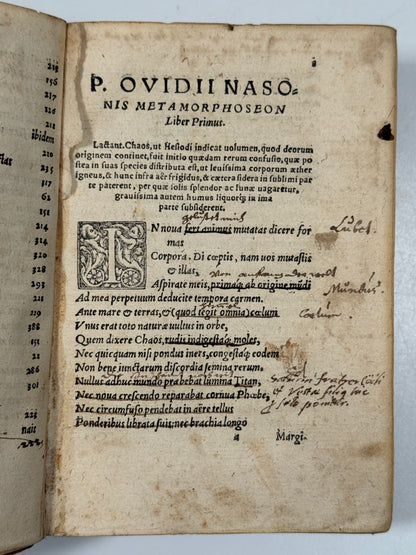 218
156
ibidem
233
321
295
233
141
293
329
351
223
nait
P. OVIDII NASO⸗
NIS METAMORPHOSEON
Liber Primus.
Lactant. Chaos, ut Hesiodi indicat uolumen, quod deorum
originem continet, fuit initio quædam rerum confusio, quæ po
stea in suas species distributa est, ut leuissima corporum æther
igneus, & hunc infra aër frigidus, & cætera sidera in sublimi par
te paterent, per quæ solis splendor ac lunæ uagaretur,
grauissima autem humus liquorq; in ima
parte subsiderent.
IN noua fert animus mutatas dicere for
mas
Lubet.
Corpora. Di cœptis, nam uos mutastis
& illas,
Aspirate meis, primaq; ab origine mũdi
Mundus
Ad mea perpetuum deducite tempora carmen.
Ante mare & terras, & (quod tegit omnia) cœlum
Cœlum.
Vnus erat toto naturæ uultus in orbe,
Quem dixere Chaos, rudis indigestaq; moles,
Nec quicquam nisi pondus iners, congestaq; eodem
Non bene iunctarum discordia semina rerum.
Nullus adhuc mundo præbebat lumina Titan,
Nec noua crescendo reparabat cornua Phœbe,
Nec circumfuso pendebat in aëre tellus
Ponderibus librata suis: nec brachia longo
a
Margi⸗